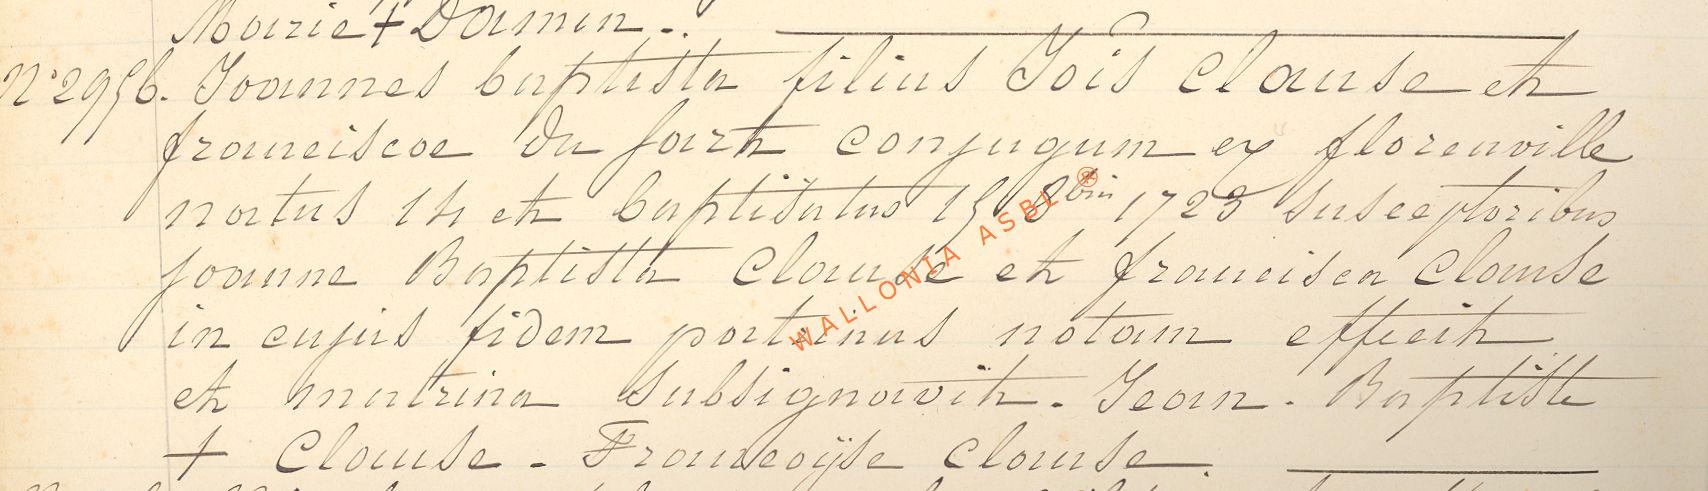 Marie + Damin ..
N° 2956. Joannes baptista filius Jois Clause et
franciscae du fart conjugum ex florenville
natus 14 et baptisatus 15 8bris 1723 susceptoribus
joanne Baptista Clause et francisca Clause
in cujus fidem patrinus notam effecit
et matrina subsignavit. Jean. Baptiste
+ Clause. Françoijse Clause.
WALLONIA ASBL ®